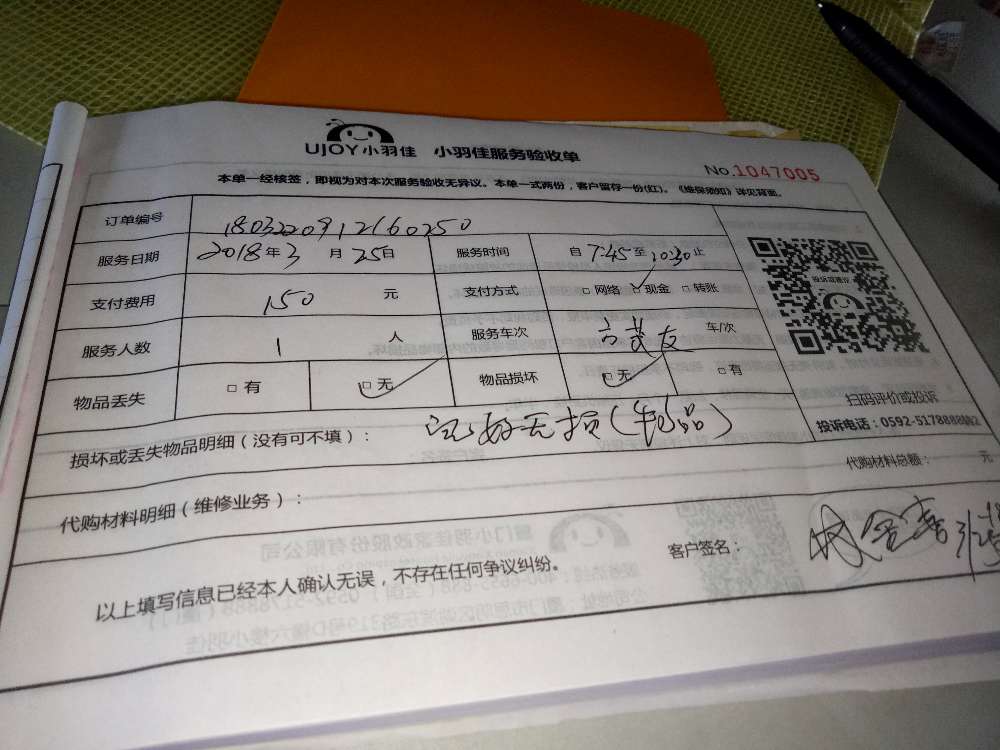 UJOY小羽佳 小羽佳服务验收单
No.1047005
本单一经核签，即视为对本次服务验收无异议。本单一式两份，客户留存一份(红)。《维保须知》详见背面。
订单编号 1803220912160250
服务日期 2018年3月25日 服务时间 自7:45至10:30止
支付费用 150 元 支付方式 □网络 □现金 □转账
服务人数 1 人 服务车次 车/次
物品丢失 □有 □无 物品损坏 □无 □有
投诉或建议
扫码评价或投诉
投诉电话：0592-5178888转2
损坏或丢失物品明细（没有可不填）： 完好无损(物品)
代购材料明细（维修业务）： 代购材料总额： 元
以上填写信息已经本人确认无误，不存在任何争议纠纷。 客户签名：